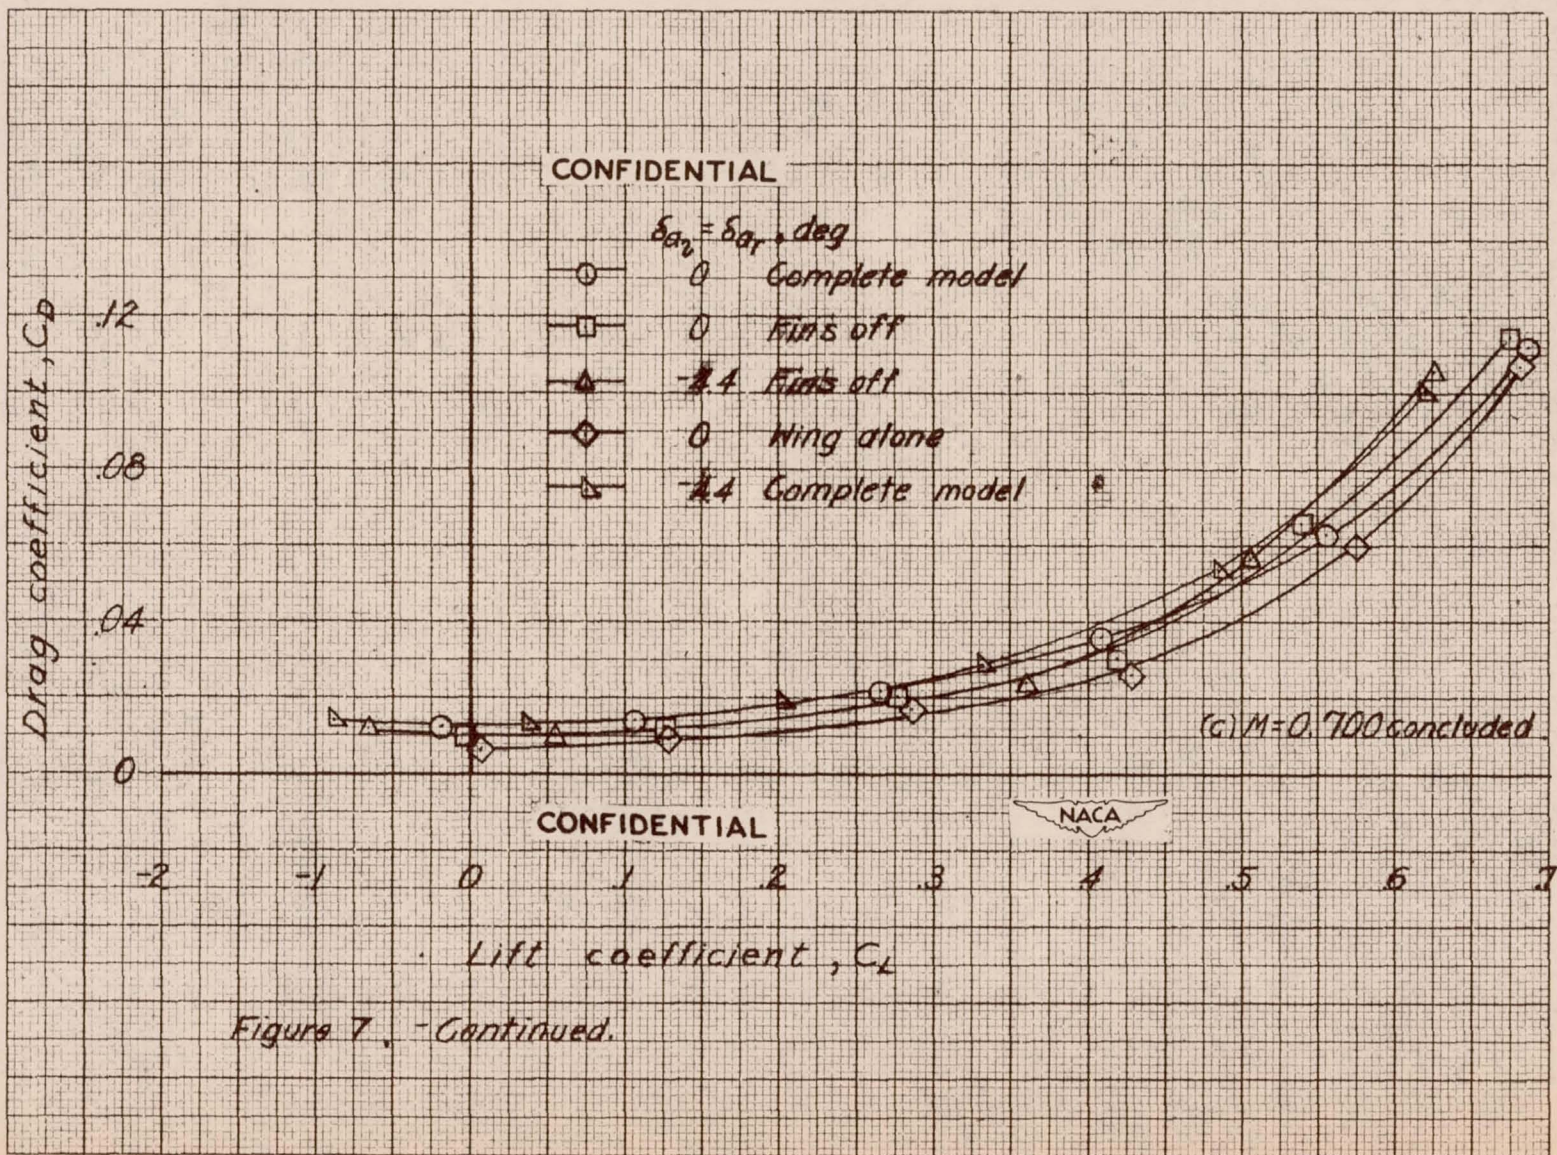 CONFIDENTIAL
δaₗ = δaᵣ, deg
0 Complete model
0 Fins off
Fins off
0 Wing alone
Complete model
.12
.08
.04
0
Drag coefficient, C_D
(c) M=0.700 concluded.
CONFIDENTIAL
NACA
-.2 -.1 0 .1 .2 .3 .4 .5 .6 .7
Lift coefficient, C_L
Figure 7. - Continued.